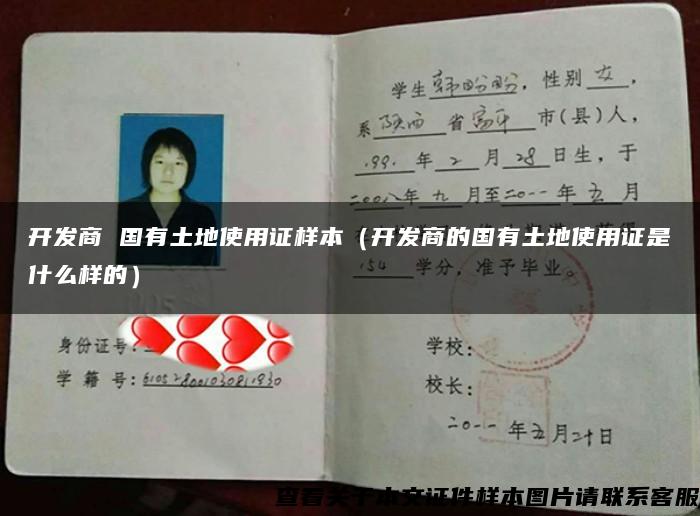 学生韩盼盼，性别女，
系陕西省富平市(县)人，
1991年2月28日生，于
二00八年九月至二0一一年五月
开发商 国有土地使用证样本（开发商的国有土地使用证是
什么样的）
154学分，准予毕业。
身份证号：
学籍号：
学校：
校长：
二0一一年五月二十日
查看关于本文证件样本图片请联系客服